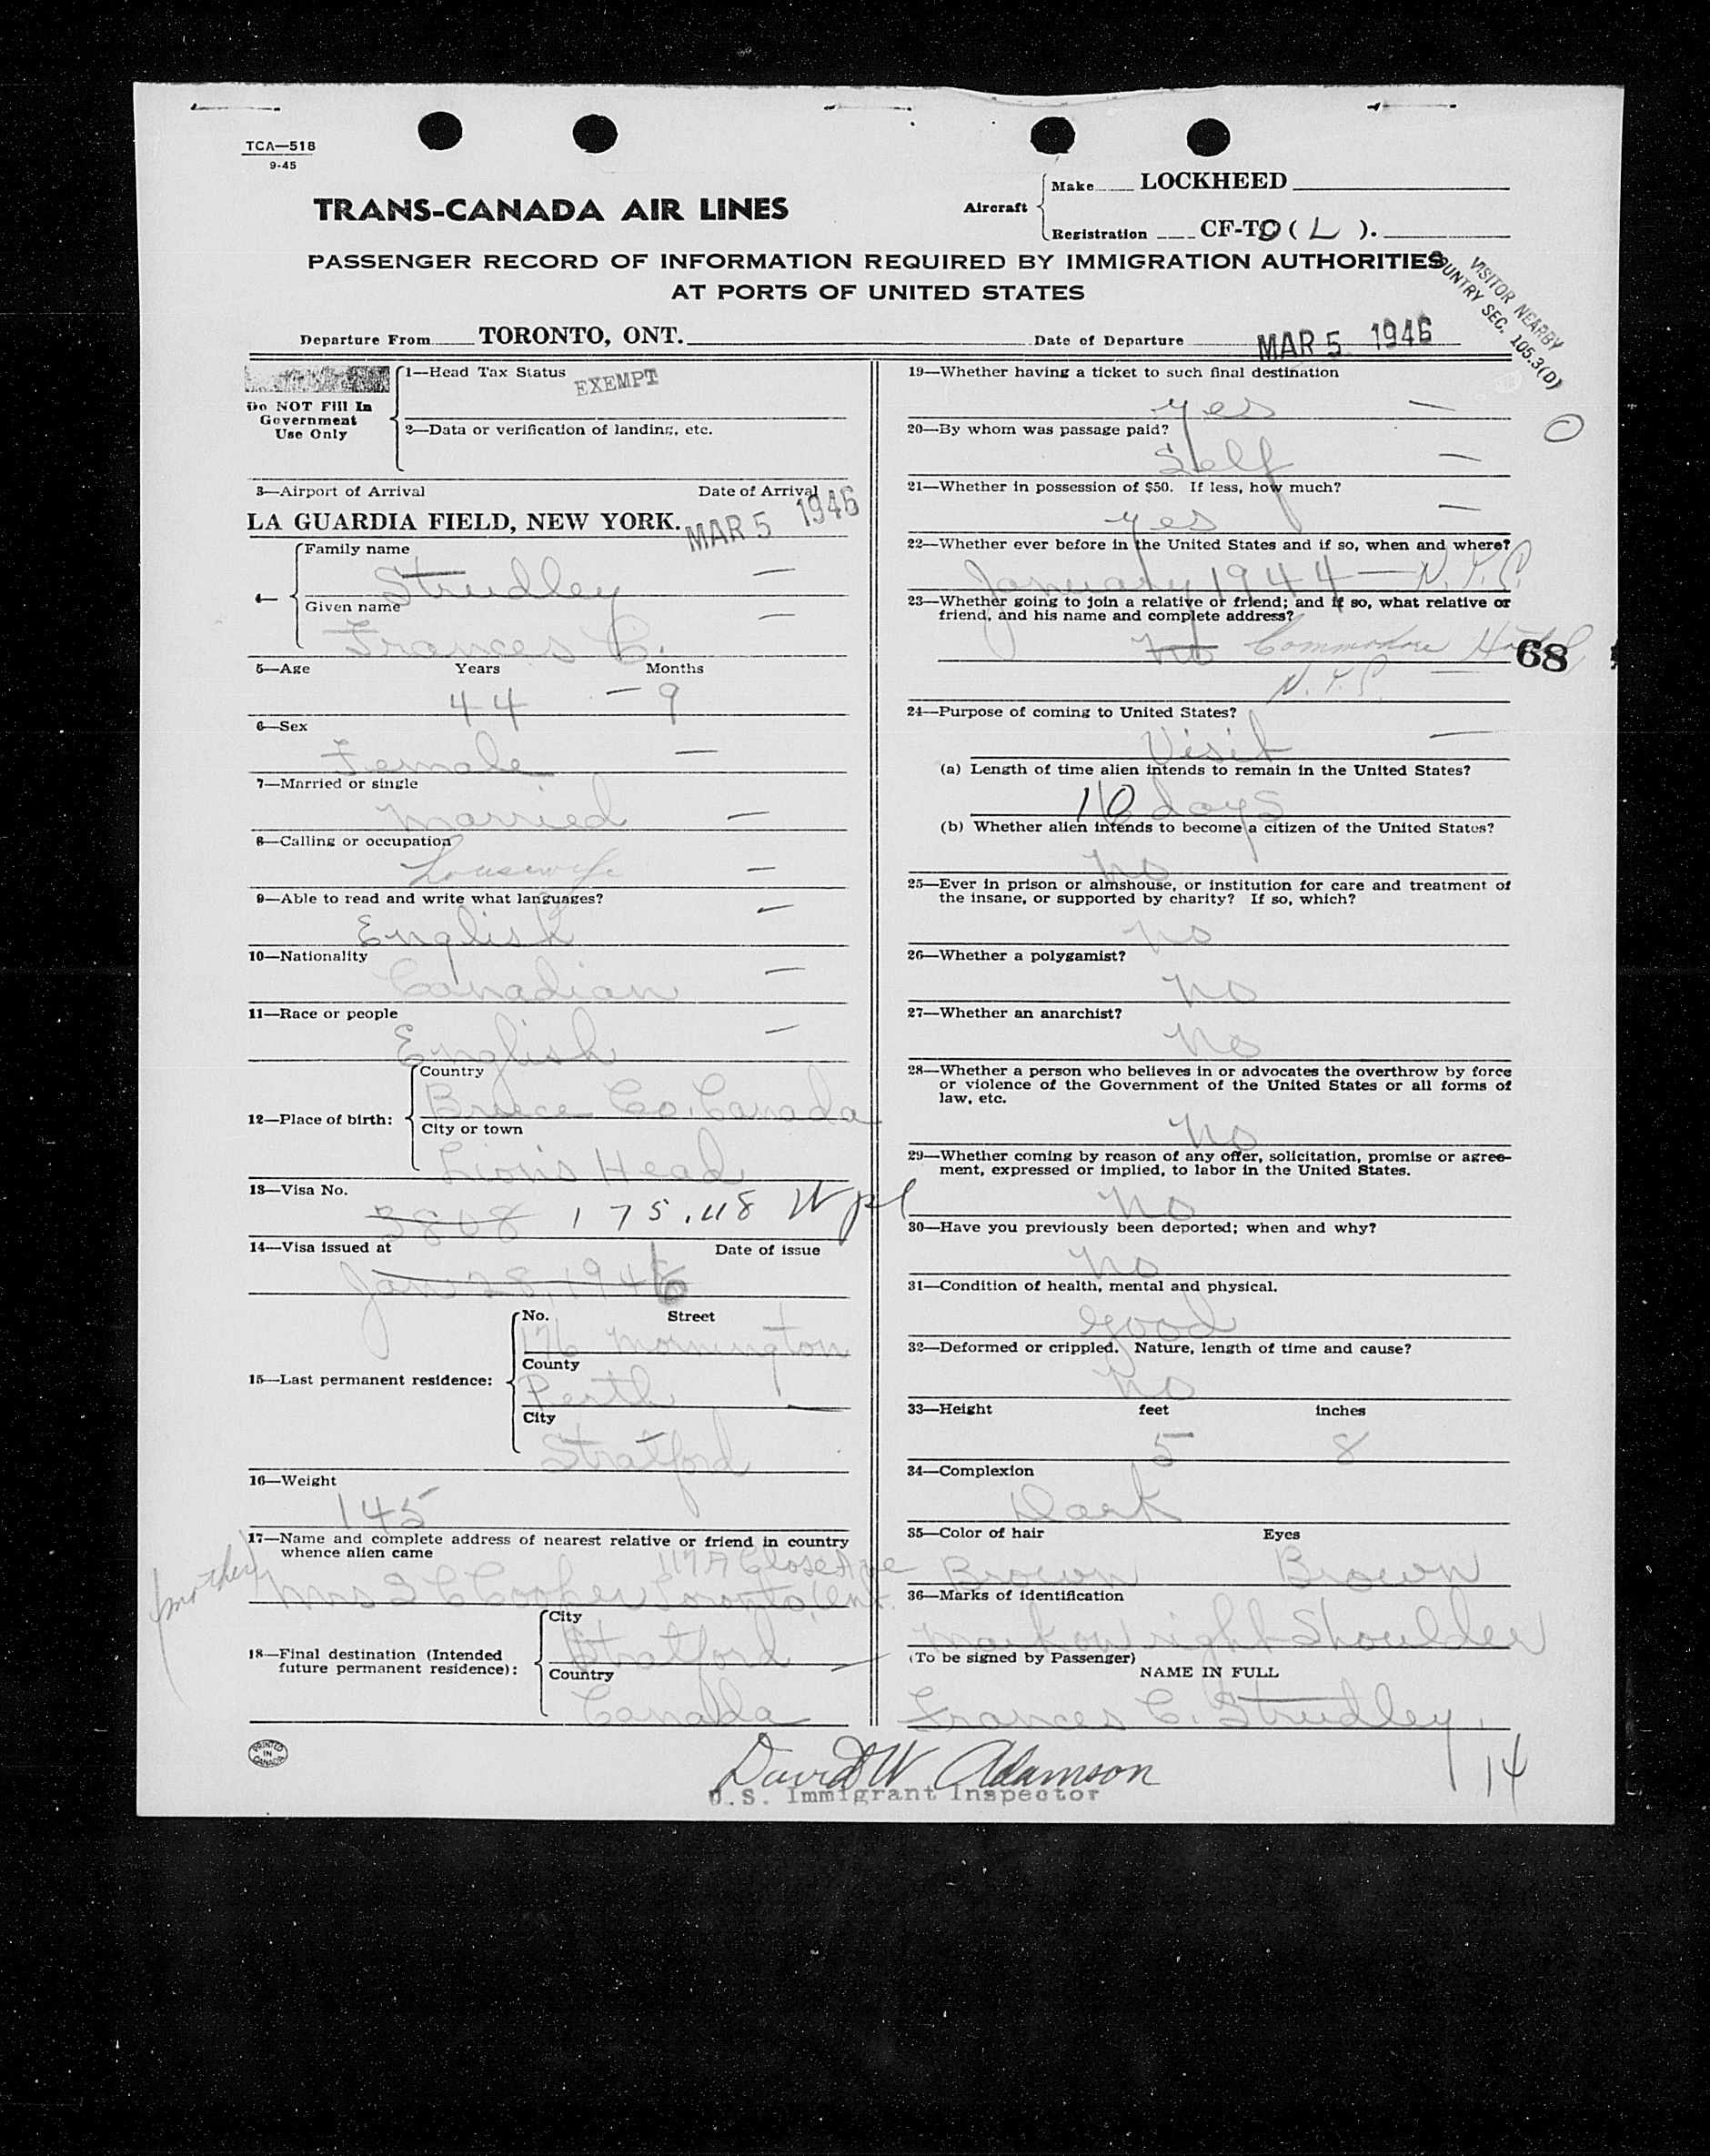 TCA—518
9-45
TRANS-CANADA AIR LINES
Aircraft
Make LOCKHEED
Registration CF-TC ( L ).
PASSENGER RECORD OF INFORMATION REQUIRED BY IMMIGRATION AUTHORITIES
AT PORTS OF UNITED STATES
VISITOR NEARBY
COUNTRY SEC. 105.3(D)
Departure From TORONTO, ONT.
Date of Departure MAR 5 1946
Do NOT Fill In
Government
Use Only
1—Head Tax Status EXEMPT
2—Data or verification of landing, etc.
3—Airport of Arrival Date of Arrival
LA GUARDIA FIELD, NEW YORK. MAR 5 1946
4—
Family name
Strudley
Given name
Frances C.
5—Age Years Months
44 — 9
6—Sex
Female
7—Married or single
Married
8—Calling or occupation
Housewife
9—Able to read and write what languages?
English
10—Nationality
Canadian
11—Race or people
English
12—Place of birth:
Country
Bruce Co. Canada
City or town
Lion's Head
13—Visa No.
3808 175.48
14—Visa issued at Date of issue
Jan 28, 1946
15—Last permanent residence:
No. Street
176 Mornington
County
Perth
City
Stratford
16—Weight
145
17—Name and complete address of nearest relative or friend in country
whence alien came
117A Close Ave
(mother) Mrs S C Cooper Toronto, Ont.
18—Final destination (Intended
future permanent residence):
City
Stratford
Country
Canada
PRINTED
IN
CANADA
19—Whether having a ticket to such final destination
yes
20—By whom was passage paid?
Self
21—Whether in possession of $50. If less, how much?
yes
22—Whether ever before in the United States and if so, when and where?
January 1944 — N.Y.C.
23—Whether going to join a relative or friend; and if so, what relative or
friend, and his name and complete address?
no Commodore Hotel 68
N.Y.C.
24—Purpose of coming to United States?
Visit
(a) Length of time alien intends to remain in the United States?
10 days
(b) Whether alien intends to become a citizen of the United States?
No
25—Ever in prison or almshouse, or institution for care and treatment of
the insane, or supported by charity? If so, which?
no
26—Whether a polygamist?
no
27—Whether an anarchist?
No
28—Whether a person who believes in or advocates the overthrow by force
or violence of the Government of the United States or all forms of
law, etc.
No
29—Whether coming by reason of any offer, solicitation, promise or agree-
ment, expressed or implied, to labor in the United States.
No
30—Have you previously been deported; when and why?
No
31—Condition of health, mental and physical.
good
32—Deformed or crippled. Nature, length of time and cause?
No
33—Height feet inches
5 8
34—Complexion
Dark
35—Color of hair Eyes
Brown Brown
36—Marks of identification
mark on right Shoulder
(To be signed by Passenger)
NAME IN FULL
Frances C. Strudley
14
David W Adamson
U.S. Immigrant Inspector